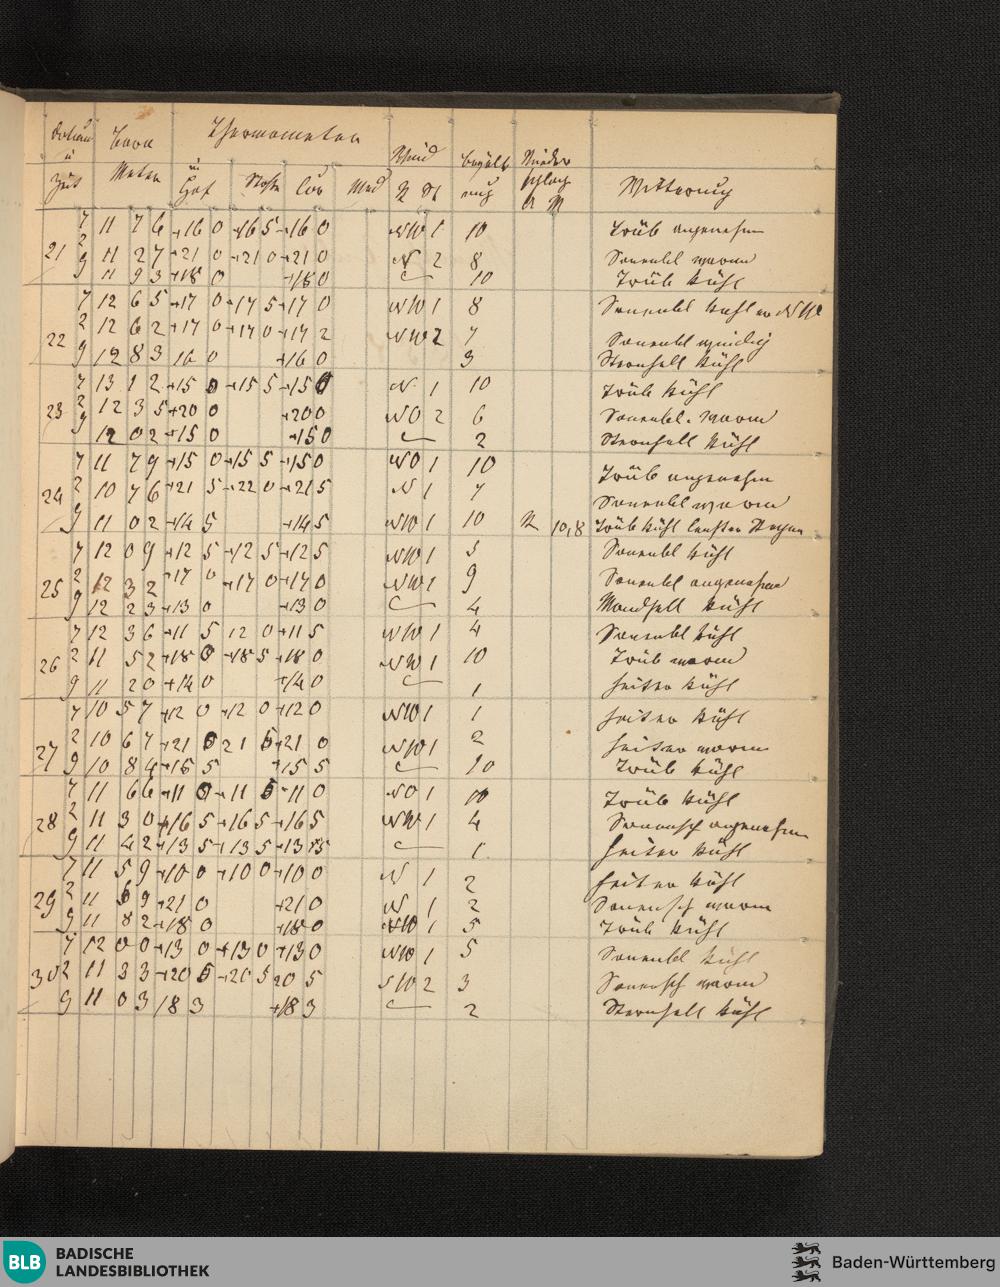 Datum u Zeit Baro Meter Thermometer in Hof Cor Med Wind R St Bewölk ung Nieder schlag A M Witterung
7 11 7 6 +16 0 +16 5 +16 0 NW 1 10 Trüb angenehm
21 2 11 2 7 +21 0 +21 0 +21 0 N 2 8 Sonnenbl warm
9 11 9 3 +18 0 +18 0 10 Trüb kühl
7 12 6 5 +17 0 +17 5 +17 0 NW 1 8 Sonnenbl kühl
22 2 12 6 2 +17 0 +17 0 +17 2 NW 2 7 Sonnenbl windig
9 12 8 3 16 0 +16 0 3 Sternhell kühl
7 13 1 2 +15 0 +15 5 +15 0 N 1 10 Trüb kühl
23 2 12 3 5 +20 0 +20 0 NO 2 6 Sonnenbl. warm
9 12 0 2 +15 0 +15 0 2 Sternhell kühl
7 11 7 9 +15 0 +15 5 +15 0 NO 1 10 Trüb angenehm
24 2 10 7 6 +21 5 +22 0 +21 5 N 1 7 Sonnenbl warm
9 11 0 2 +14 5 +14 5 NW 1 10 R 10,8 Trüb kühl Regen
7 12 0 9 +12 5 +12 5 +12 5 NW 1 5 Sonnenbl kühl
25 2 12 3 2 +17 0 +17 0 +17 0 NW 1 9 Sonnenbl angenehm
9 12 2 3 +13 0 +13 0 4 Mondhell kühl
7 12 3 6 +11 5 12 0 +11 5 NW 1 4 Sonnenbl kühl
26 2 11 5 2 +18 0 +18 5 +18 0 NW 1 10 Trüb warm
9 11 2 0 +14 0 +14 0 1 heiter kühl
7 10 5 7 +12 0 +12 0 +12 0 NW 1 1 heiter kühl
27 2 10 6 7 +21 0 21 5 +21 0 NW 1 2 heiter warm
9 10 8 4 +15 5 +15 5 10 Trüb kühl
7 11 6 6 +11 0 +11 5 +11 0 NO 1 10 Trüb kühl
28 2 11 3 0 +16 5 +16 5 +16 5 NW 1 4 Sonnensch angenehm
9 11 4 2 +13 5 +13 5 +13 5 1 heiter kühl
7 11 5 9 +10 0 +10 0 +10 0 N 1 2 heiter kühl
29 2 11 6 9 +21 0 +21 0 N 1 2 Sonnensch warm
9 11 8 2 +18 0 +18 0 NW 1 5 Trüb kühl
7 12 0 0 +13 0 +13 0 +13 0 NW 1 5 Sonnenbl kühl
30 2 11 3 3 +20 5 +20 5 20 5 SW 2 3 Sonnensch warm
9 11 0 3 18 3 +18 3 2 Sternhell kühl
BLB BADISCHE LANDESBIBLIOTHEK
Baden-Württemberg